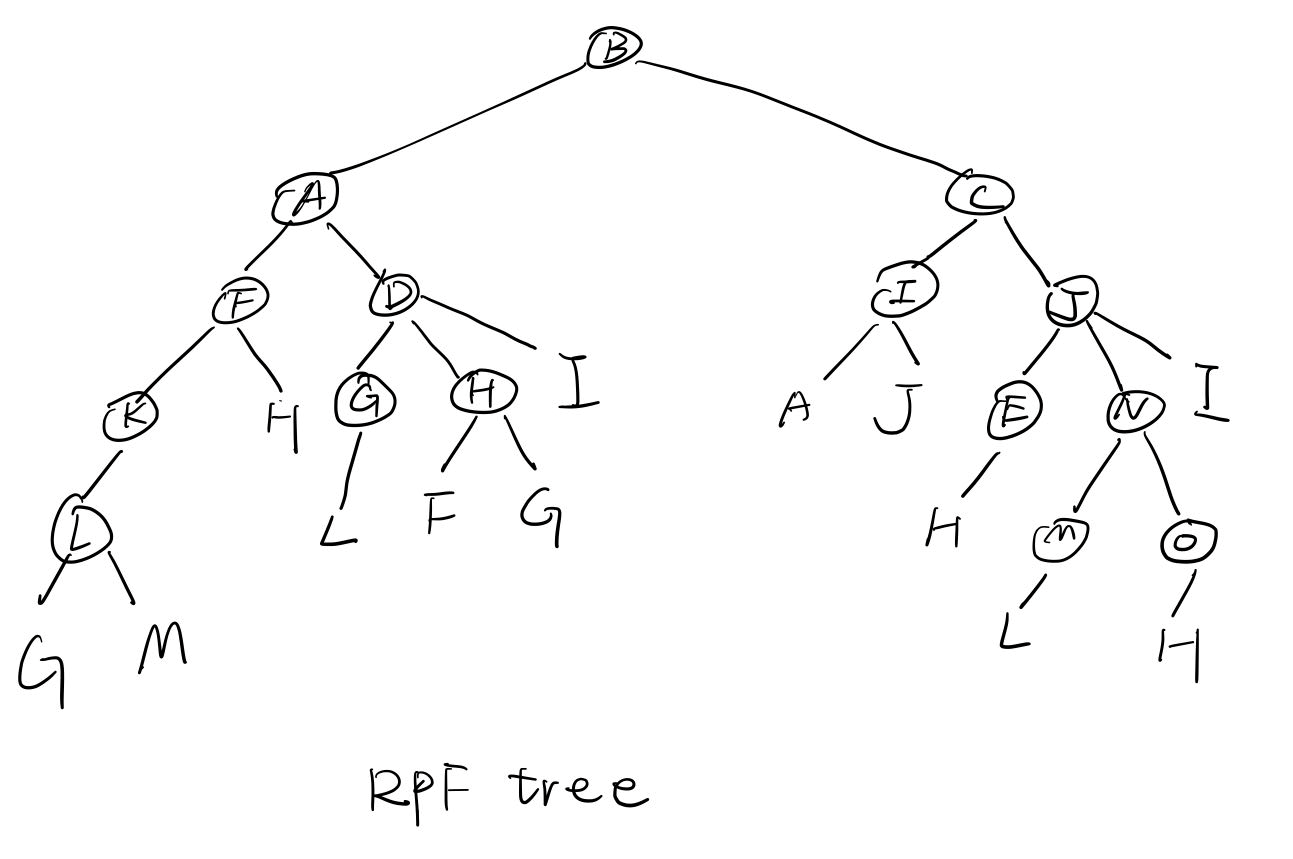 B
A C
F D I J
K H G H I A J E N I
L L F G H M O
G M L H
RPF tree